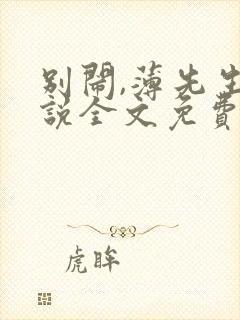 别闹,薄先生
說全文免費
虎眸